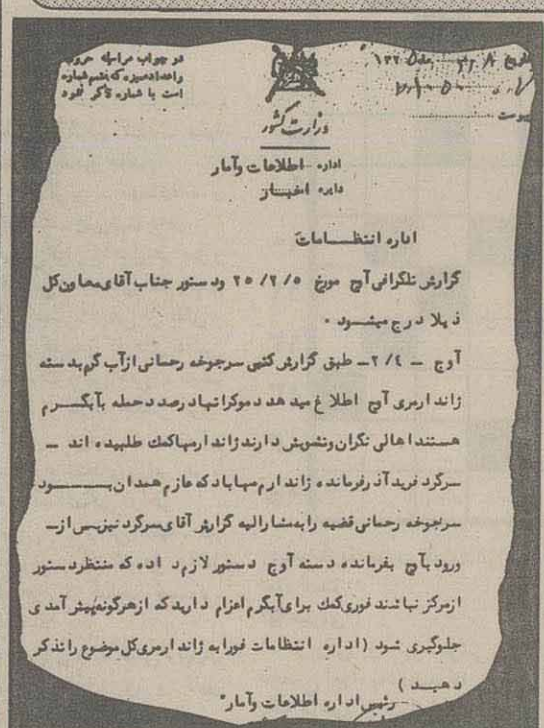 در جواب مراسله حروف
واعداد ممیزه که بضم شماره
است با شماره ذکر شود
وزارت کشور
اداره اطلاعات وآمار
دایره اخبار
اداره انتظامات
گزارش تلگرافی آوج مورخ ۲۵/۲/۵ ودستور جناب آقای معاون کل
ذیلا درج میشود ۰
آوج - ۲/۴ - طبق گزارش کتبی سرجوخه رحمانی از آب گرم بدسته
ژاندارمری آوج اطلاع میدهد دموکراتها درصدد حمله بآبگرم
هستند اهالی نگران وتشویش دارند ژاندارمها کمک طلبیده اند -
سرگرد فرید آذر فرمانده ژاندارم مهاباد که عازم همدان بود
سرجوخه رحمانی قضیه را بمشارالیه گزارش آقای سرگرد نیز پس از -
ورود بآوج بفرمانده دسته آوج دستور لازم داده که منتظر دستور
از مرکز نباشند فوری کمک برای آبگرم اعزام دارید که از هرگونه پیش آمدی
جلوگیری شود (اداره انتظامات فورا به ژاندارمری کل موضوع را تذکر
دهید)
رئیس اداره اطلاعات وآمار